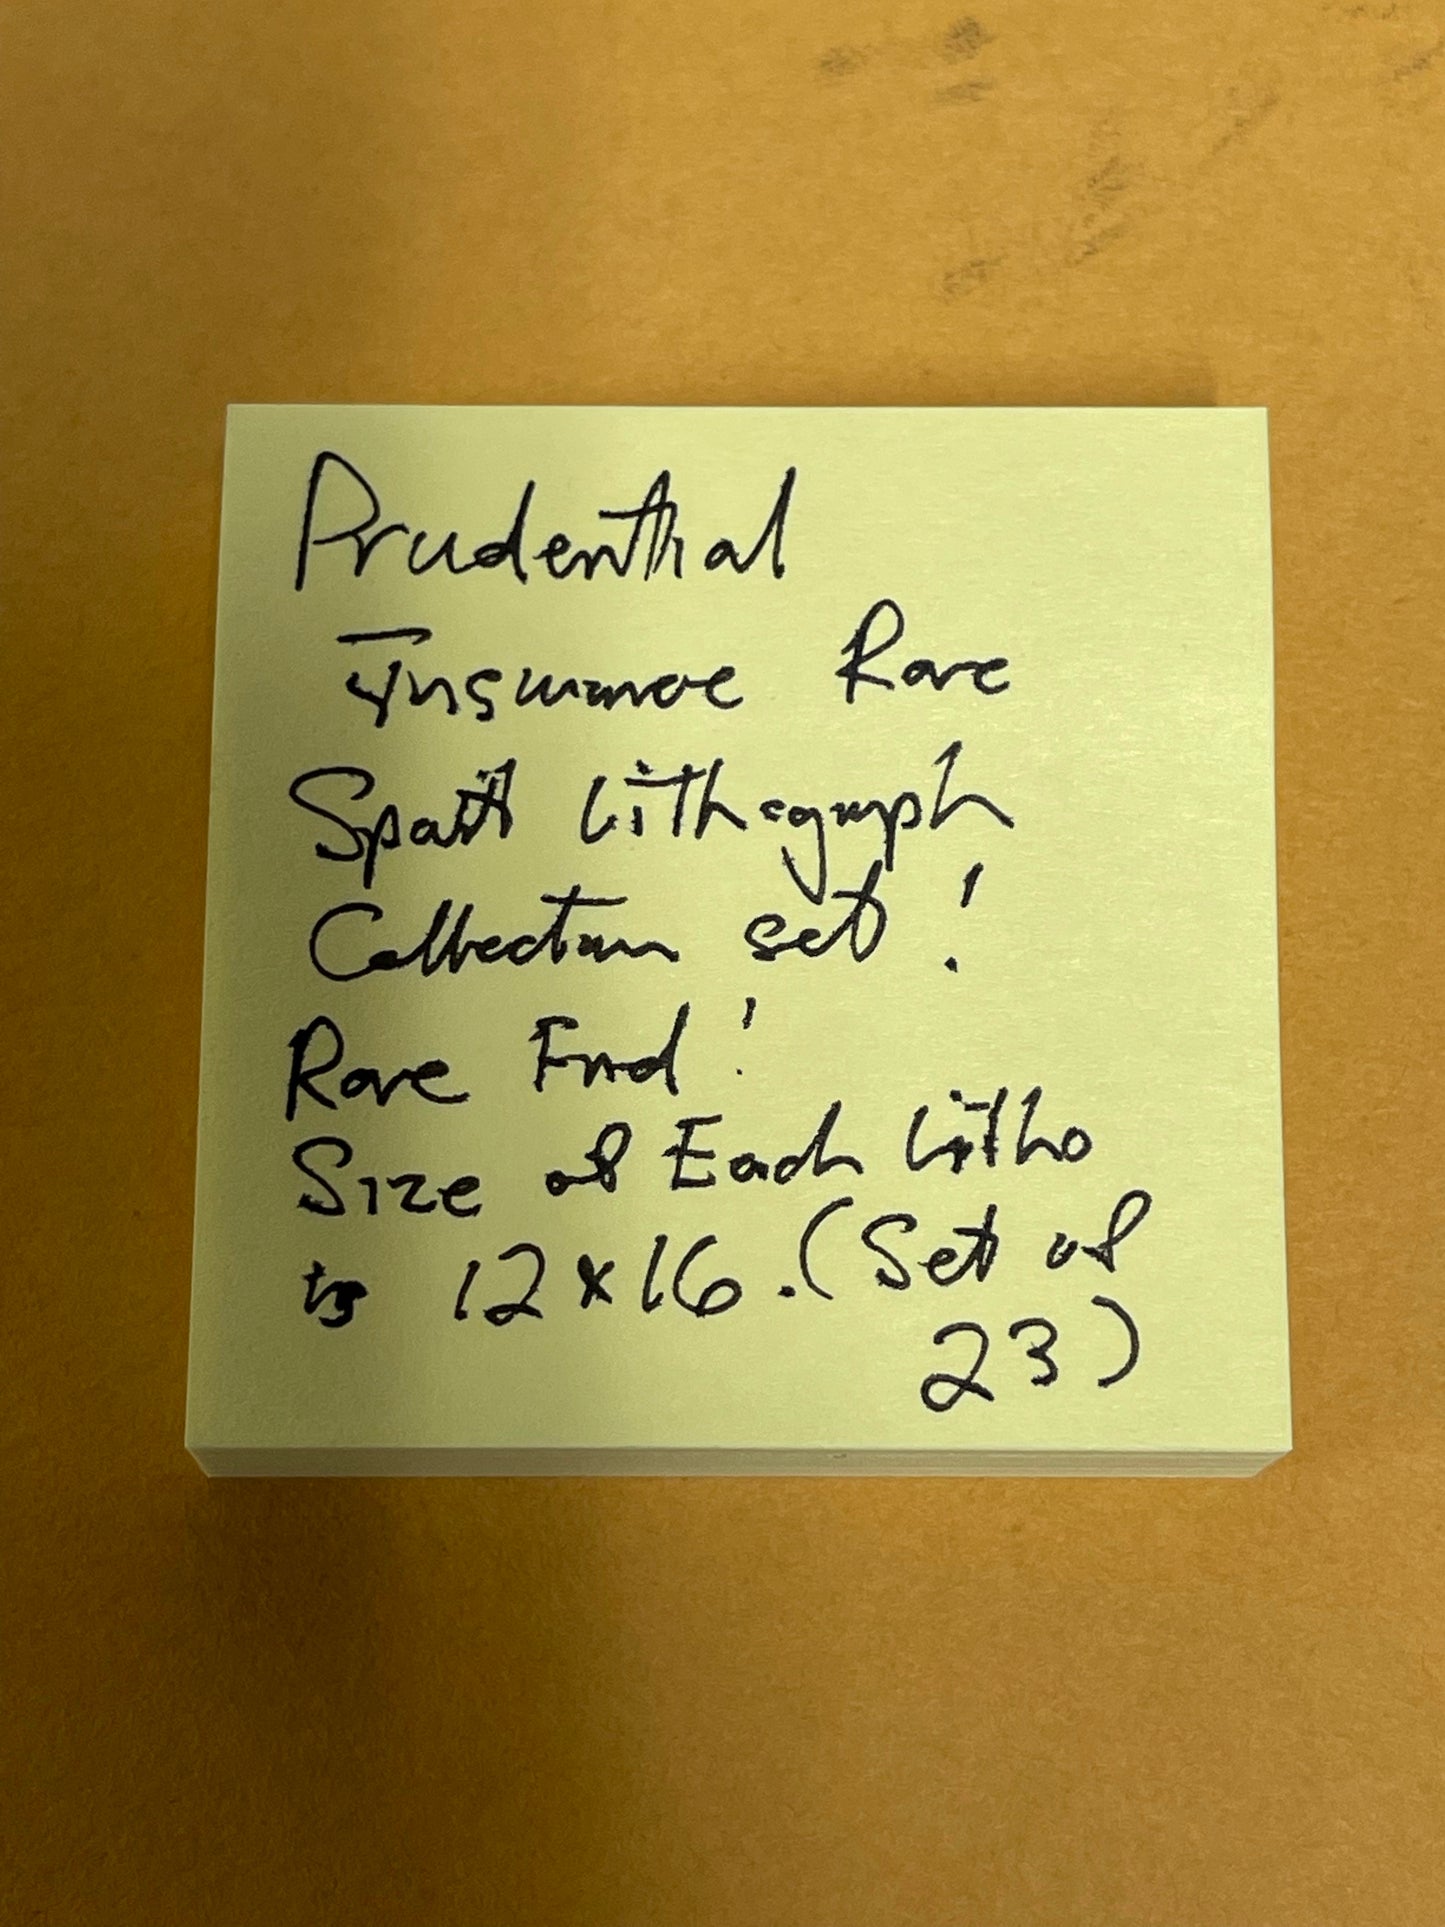 Prudential
Insurance Rare
Sport Lithograph
Collection set!
Rare Find!
Size of Each Litho
is 12x16. (Set of
23)